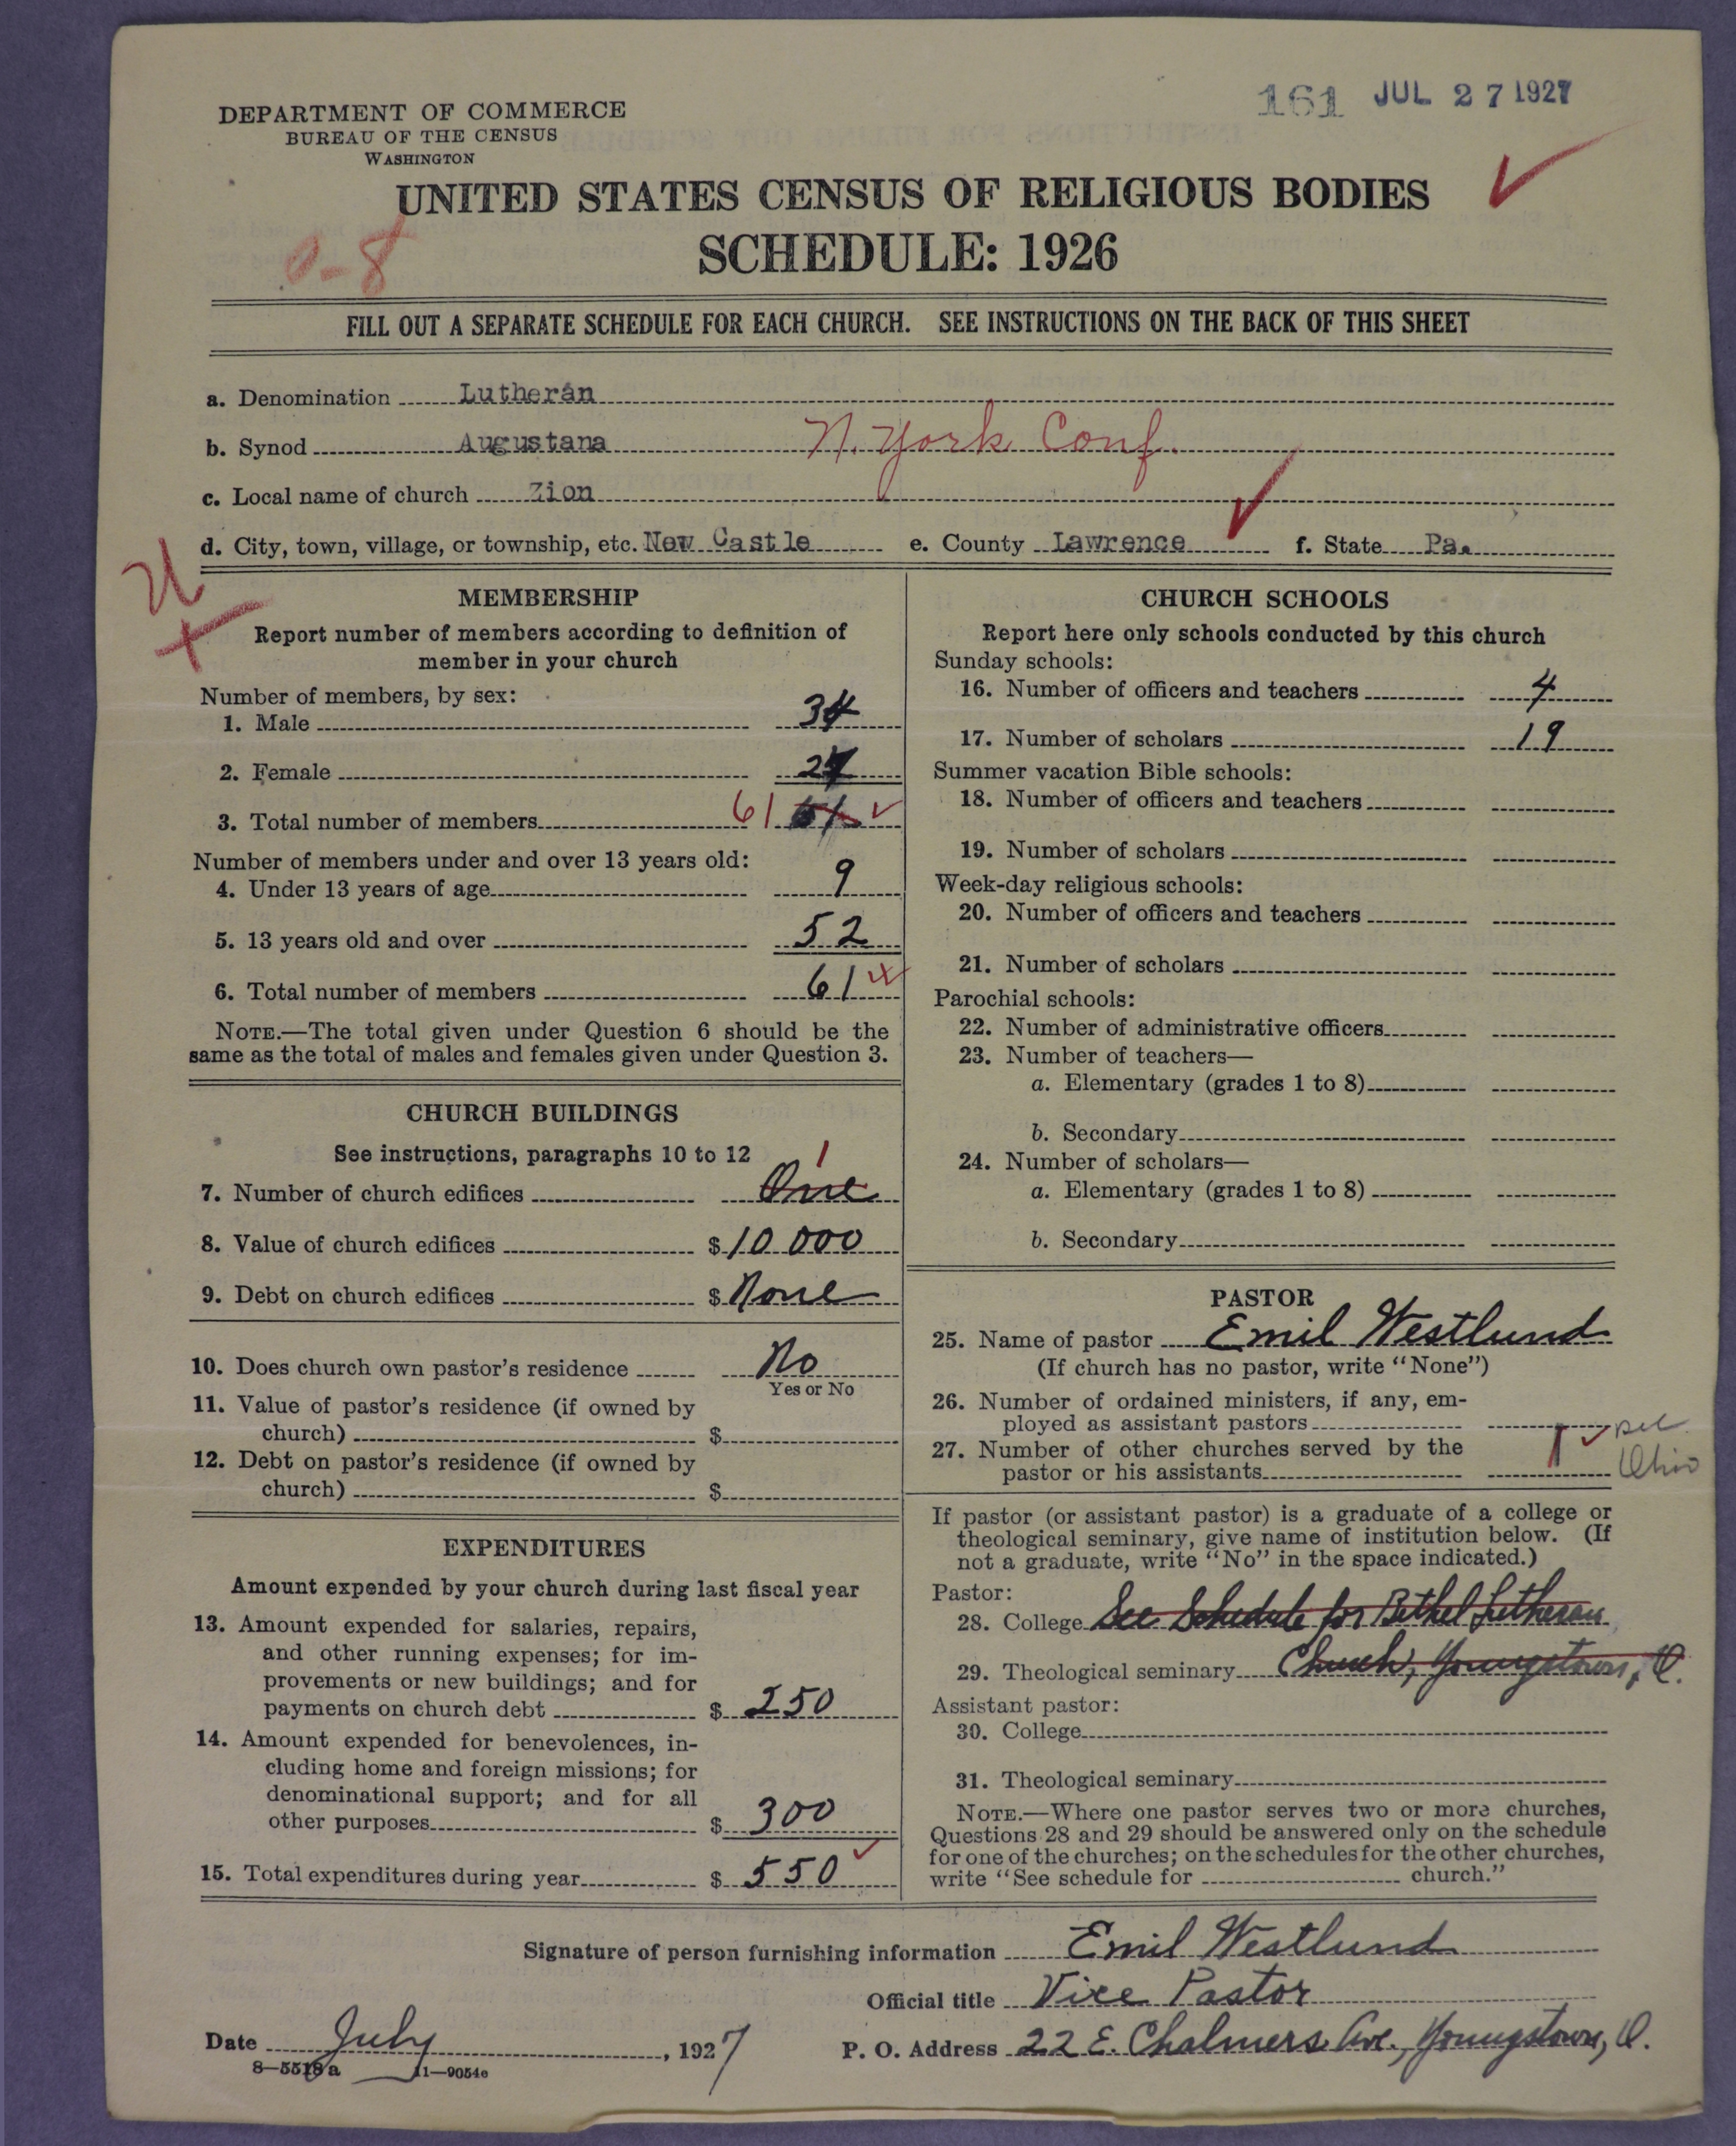 161 JUL 27 1927
DEPARTMENT OF COMMERCE
BUREAU OF THE CENSUS
WASHINGTON
UNITED STATES CENSUS OF RELIGIOUS BODIES
SCHEDULE: 1926
0-8
FILL OUT A SEPARATE SCHEDULE FOR EACH CHURCH. SEE INSTRUCTIONS ON THE BACK OF THIS SHEET
a. Denomination Lutheran
b. Synod Augustana N. York Conf.
c. Local name of church Zion
d. City, town, village, or township, etc. New Castle e. County Lawrence f. State Pa.
MEMBERSHIP
Report number of members according to definition of
member in your church
Number of members, by sex:
1. Male 34
2. Female 27
3. Total number of members 61 61
Number of members under and over 13 years old:
4. Under 13 years of age 9
5. 13 years old and over 52
6. Total number of members 61
NOTE.—The total given under Question 6 should be the
same as the total of males and females given under Question 3.
CHURCH BUILDINGS
See instructions, paragraphs 10 to 12
1
7. Number of church edifices One
8. Value of church edifices $ 10 000
9. Debt on church edifices $ None
10. Does church own pastor's residence No
Yes or No
11. Value of pastor's residence (if owned by
church) $
12. Debt on pastor's residence (if owned by
church) $
EXPENDITURES
Amount expended by your church during last fiscal year
13. Amount expended for salaries, repairs,
and other running expenses; for im-
provements or new buildings; and for
payments on church debt $ 250
14. Amount expended for benevolences, in-
cluding home and foreign missions; for
denominational support; and for all
other purposes $ 300
15. Total expenditures during year $ 550
CHURCH SCHOOLS
Report here only schools conducted by this church
Sunday schools:
16. Number of officers and teachers 4
17. Number of scholars 19
Summer vacation Bible schools:
18. Number of officers and teachers
19. Number of scholars
Week-day religious schools:
20. Number of officers and teachers
21. Number of scholars
Parochial schools:
22. Number of administrative officers
23. Number of teachers—
a. Elementary (grades 1 to 8)
b. Secondary
24. Number of scholars—
a. Elementary (grades 1 to 8)
b. Secondary
PASTOR
25. Name of pastor Emil Westlund
(If church has no pastor, write "None")
26. Number of ordained ministers, if any, em-
ployed as assistant pastors
27. Number of other churches served by the
pastor or his assistants 1 Ohio
If pastor (or assistant pastor) is a graduate of a college or
theological seminary, give name of institution below. (If
not a graduate, write "No" in the space indicated.)
Pastor:
28. College See Schedule for Bethel Lutheran
29. Theological seminary Church, Youngstown, O.
Assistant pastor:
30. College
31. Theological seminary
NOTE.—Where one pastor serves two or more churches,
Questions 28 and 29 should be answered only on the schedule
for one of the churches; on the schedules for the other churches,
write "See schedule for church."
Signature of person furnishing information Emil Westlund
Official title Vice Pastor
Date July, 1927 P. O. Address 22 E. Chalmers Ave., Youngstown, O.
8—5518a 11—9054e